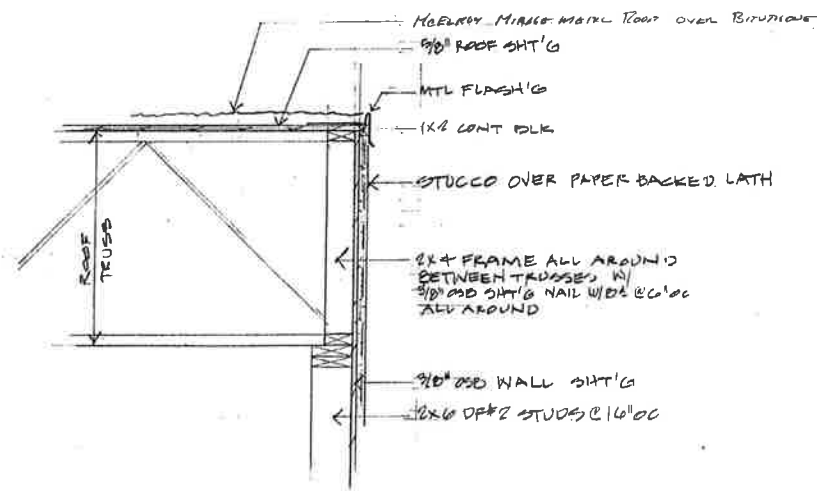 McELROY MIRAGE METAL ROOF OVER BITUTHENE
5/8" ROOF SHT'G
MTL FLASH'G
1X2 CONT BLK
STUCCO OVER PAPER BACKED LATH
ROOF
TRUSS
2X4 FRAME ALL AROUND
BETWEEN TRUSSES W/
3/8" OSB SHT'G NAIL W/8d @ 6" OC
ALL AROUND
3/8" OSB WALL SHT'G
2X6 DF#2 STUDS @ 16" OC